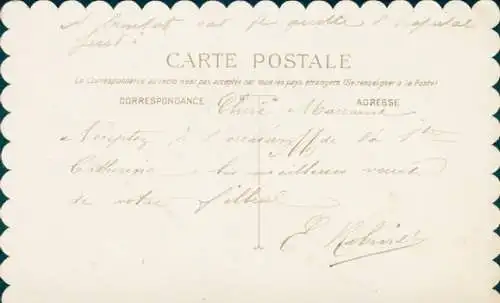 A bientôt car je quitte l'hopital
CARTE POSTALE
La Correspondance au recto n'est pas acceptée par tous les pays étrangers (Se renseigner à la Poste)
CORRESPONDANCE
ADRESSE
Chère Marraine
Acceptez à l'occasion de la Ste
Catherine les meilleurs vœux
de votre filleul
E